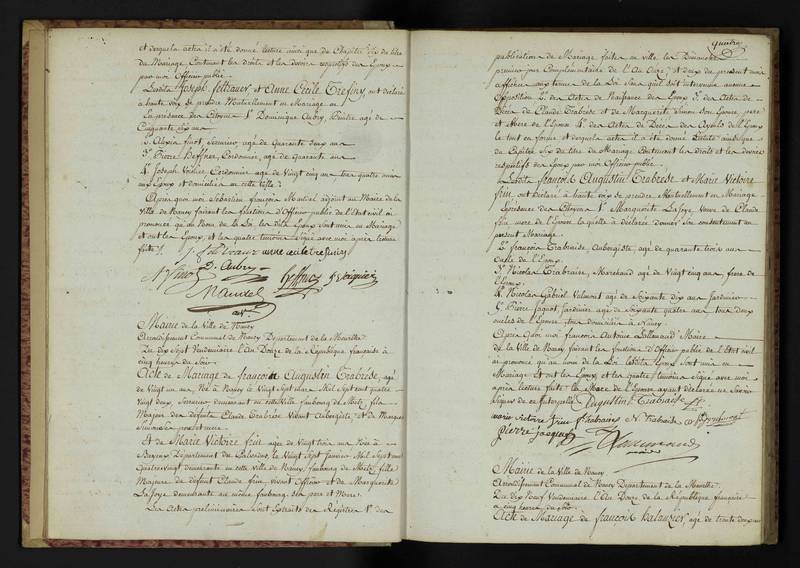 et desquels actes il a été donné lecture ainsi que du Chapitre six du titre
du Mariage, Contenant les droits et les devoirs respectifs des Epoux
par moi Officier public.
Lesdits Joseph et Anne Cécile Tresiny ont déclaré
à haute voix se prendre Mutuellement en Mariage
En présence des Citoyens 1° Dominique Aubry, agé de
Cinquante
2° Alexis finot, agé de Quarante deux ans
3° Pierre Beffner, Cordonnier, agé de Quarante ans
4° Joseph Cordonnier agé de Vingt cinq ans tous quatre amis
des Epoux et domiciliés en cette Ville.
Après quoi moi Sébastien françois Mandel adjoint au Maire de la
Ville de Nancy faisant les fonctions d'Officier public de l'Etat civil ai
prononcé qu'au Nom de la Loi, lesdits Epoux sont unis en Mariage
et ont les Epoux, et les quatre témoins Signé avec moi après lecture
faite.
anne cecile tresiny
D. Aubry
Mandel
Mairie de la Ville de Nancy
Arrondissement Communal de Nancy Département de la Meurthe
Du dix Sept Vendemiaire l'An Douze de la République française à
cinq heures du Soir
Acte de Mariage de françois Augustin Trabaise, agé
de Vingt un ans, Né à Nancy le Vingt Sept Mars Mil Sept cent quatre
vingt deux, demeurant en cette Ville faubourg de Metz, fils
Majeur des défunts Claude Trabaise Vivant Aubergiste et de Marguerite
Simon son Epouse
Et de Marie Victoire frin agée de Vingt trois ans Née à
Département du Calvados, le Vingt Sept Janvier Mil Sept cent
Quatre vingt demeurante en cette Ville de Nancy, faubourg de Metz, fille
Majeure de défunt Claude frin, vivant Officier et de Marguerite
Lajoye demeurante au même faubourg, ses père et Mère.
Les Actes préliminaires sont Extraits des Registres 1° des
quatre
publications de Mariage faites en cette ville les Dimanches
premier jour Complementaire de l'An Onze, et deux du présent mois
affichées aux termes de la Loi Sans qu'il soit intervenu aucune
Opposition 2° des Actes de Naissance des Epoux 3° des Actes de
Décès de Claude Trabaise et de Marguerite Simon son Epouse, père
et Mère de l'Epoux 4° des Actes de Décès des Ayeuls de l'Epoux
le tout en forme et desquels actes il a été donné lecture ainsi que
du Chapitre Six du titre du Mariage Contenant les Droits et les devoirs
respectifs des Epoux par moi Officier public.
Lesdits françois Augustin Trabaise et Marie Victoire
frin ont Déclaré à haute voix se prendre Mutuellement en Mariage
En présence des Citoyens 1° Marguerite Lajoye Veuve de Claude
frin mère de l'Epouse laquelle a déclaré donner son consentement au
présent Mariage.
2° françois Trabaise, Aubergiste, agé de quarante trois ans
oncle de l'Epoux
3° Nicolas Trabaise, Marchand agé de Vingt cinq ans, frère de
l'Epoux
4° Nicolas Gabriel Valmont agé de Soixante dix ans Jardinier
5° Pierre Jaquot, Jardinier, agé de Soixante quatre ans tous deux
oncles de l'Epouse tous domiciliés à Nancy.
Après Quoi moi françois Antoine Lallemand Maire
de la Ville de Nancy faisant les fonctions d'Officier public de l'Etat civil
ai prononcé qu'au nom de la Loi lesdits Epoux sont unis en
Mariage Et ont les Epoux et les quatre témoins Signé avec moi
après lecture faite la Mère de l'Epouse ayant déclaré ne Savoir
Signer de ce Interpellée
Augustin Trabaise
marie victoire frin f. trabaise N. Trabaise
pierre jacquot
Lallemand
Mairie de la Ville de Nancy
Arrondissement Communal de Nancy Département de la Meurthe
Du dix Neuf Vendemiaire l'An Douze de la République française
à cinq heures du soir
Acte de Mariage de françois Balanzier, agé de trente deux ans